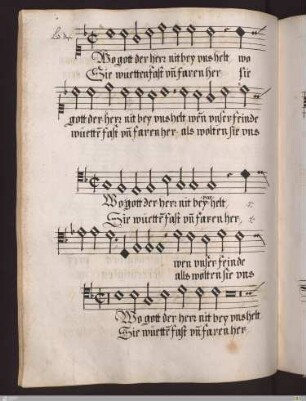 Wo gott der herr nit bey vns helt wo
Sie wuetten fast vn̄ faren her sie
gott der herr nit bey vns helt wen̄ vnser feinde
wüetten̄ fast vn̄ faren her als wolten sie vns
Wo gott der herr nit bey vns helt,
Sie wüetten̄ fast vn̄ faren her,
wen vnser feinde
alls wolten sie vns
Wo gott der herr nit bey vns helt
Sie wüetten̄ fast vn̄ faren her